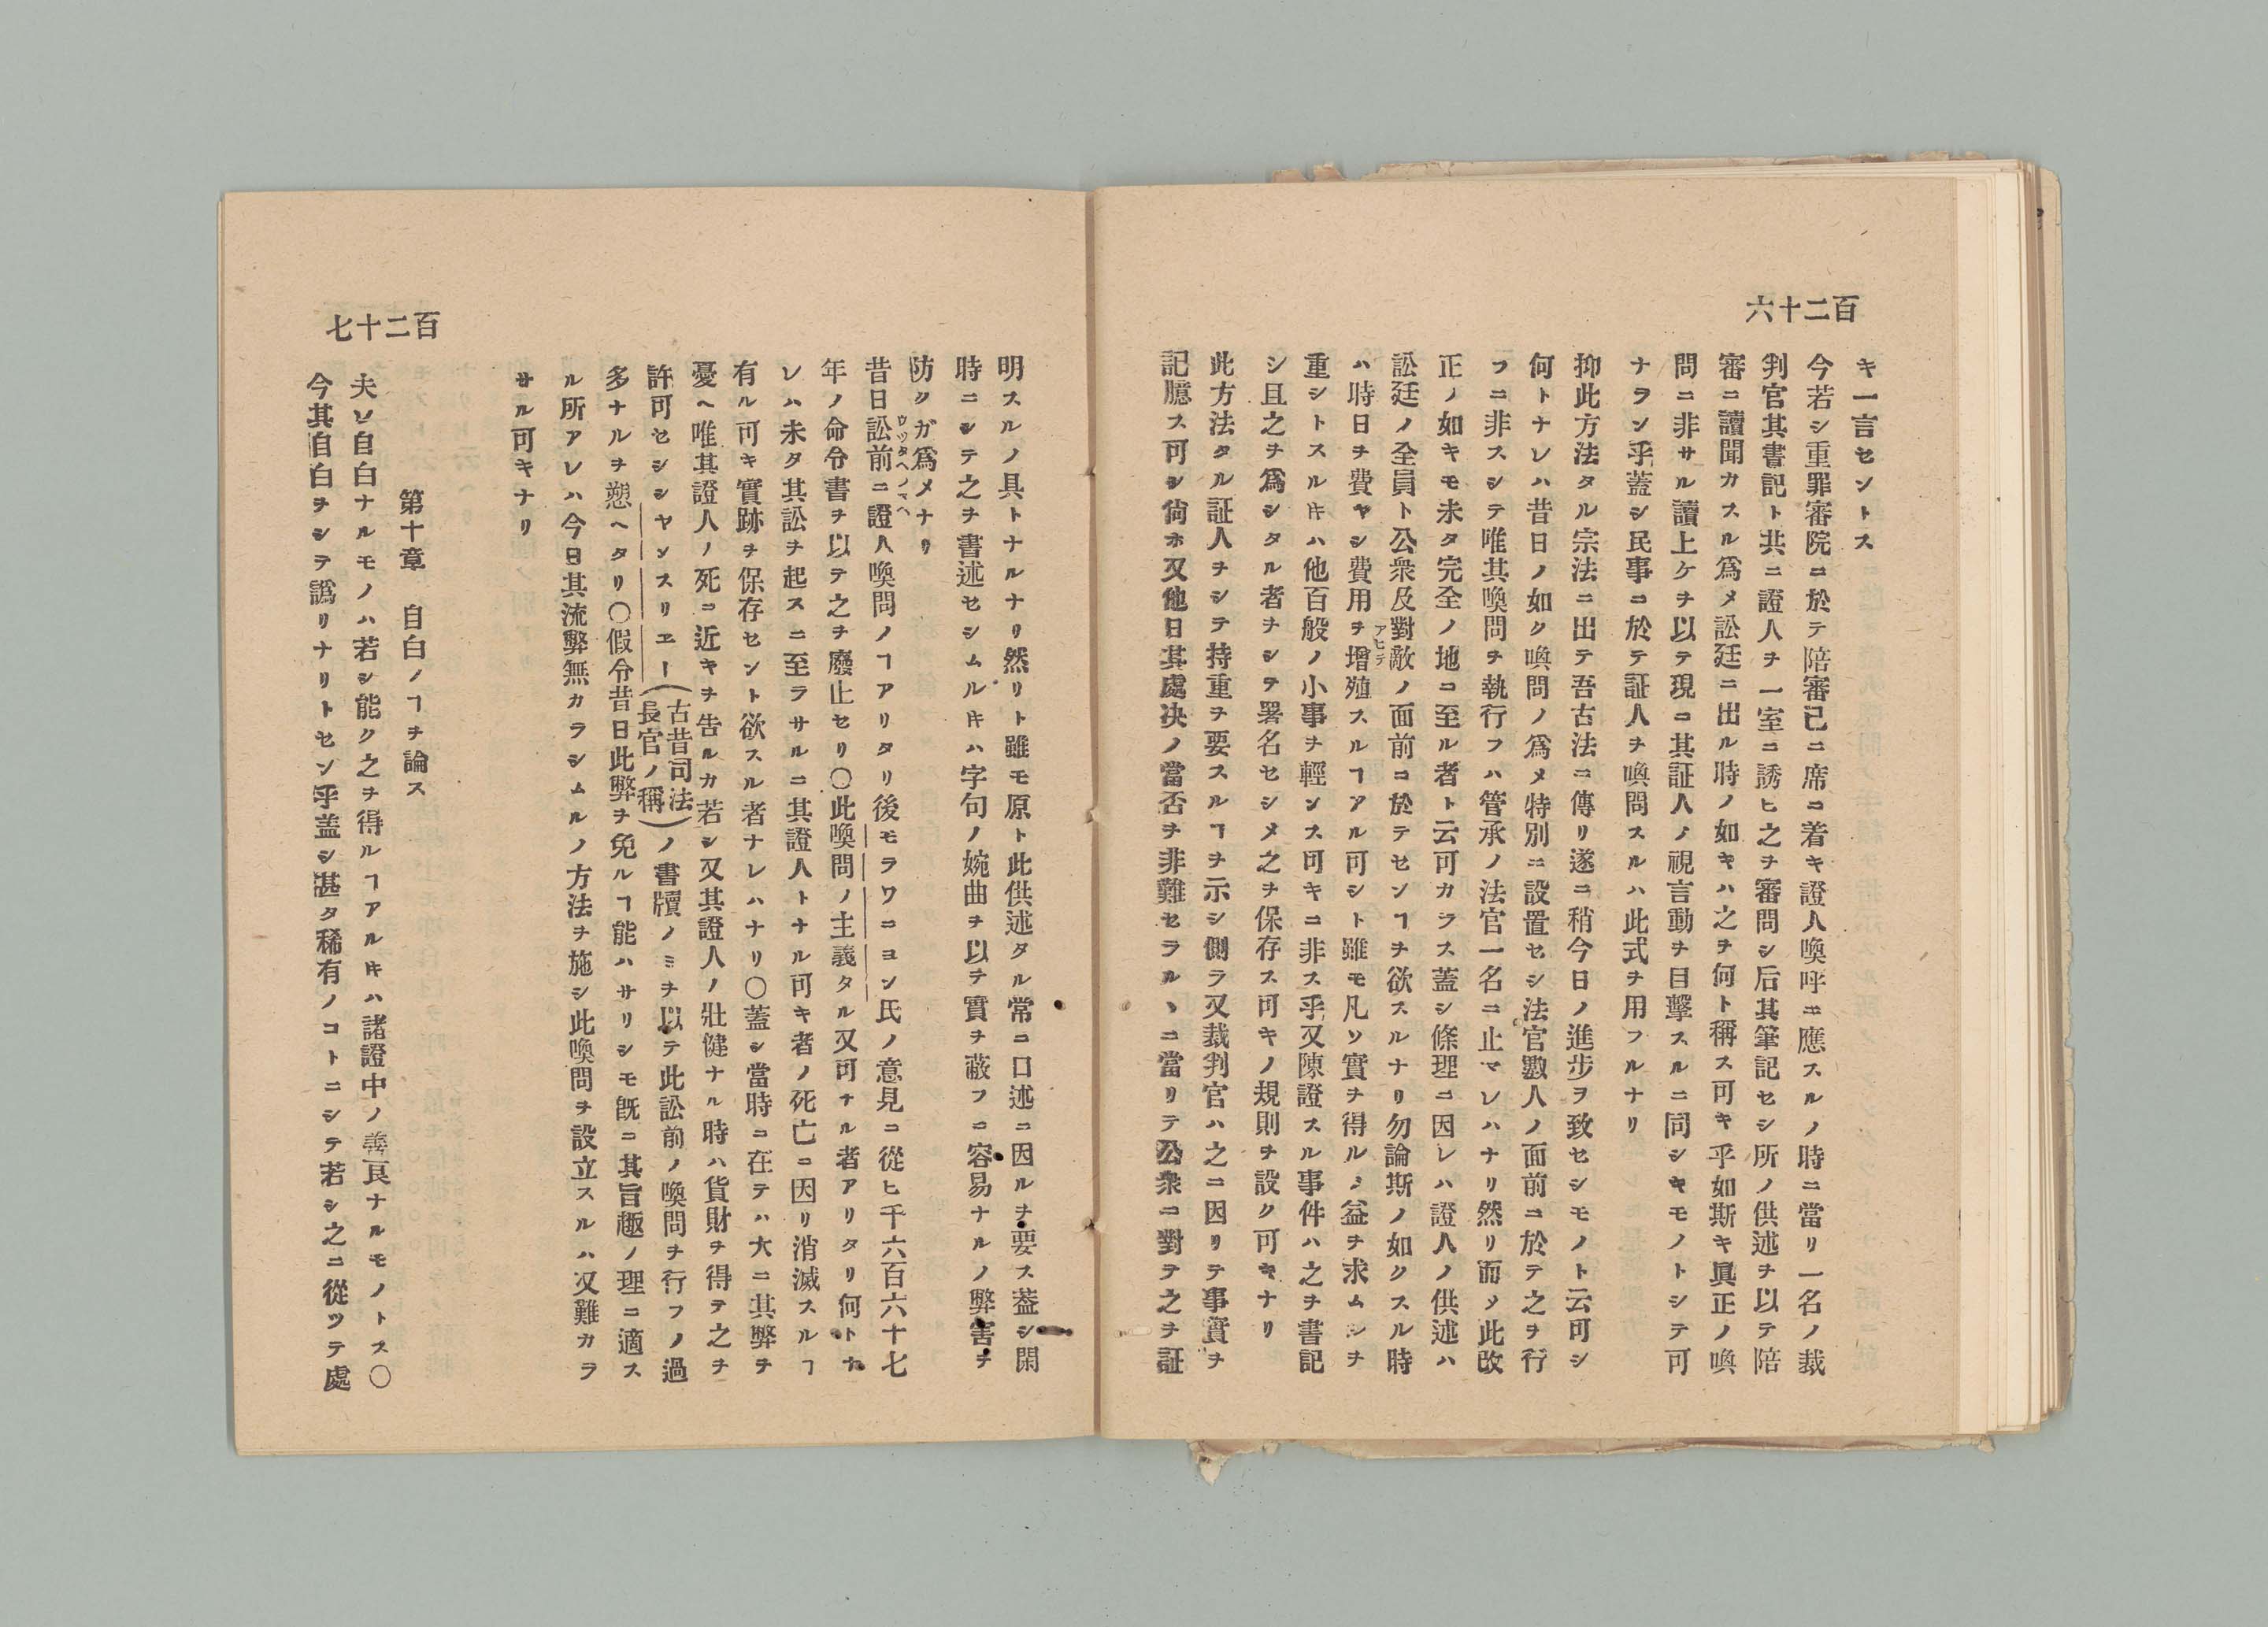 百二十六
キ一言セントス
今若シ重罪審院ニ於テ陪審己ニ席ニ着キ證人喚呼ニ應スルノ時ニ當リ一名ノ裁
判官其書記ト共ニ證人ヲ一室ニ誘ヒ之ヲ審問シ后其筆記セシ所ノ供述ヲ以テ陪
審ニ讀聞カスル爲メ訟廷ニ出ル時ノ如キハ之ヲ何ト稱ス可キ乎如斯キ眞正ノ喚
問ニ非サル讀上ケヲ以テ現ニ其証人ノ視言動ヲ目撃スルニ同シキモノトシテ可
ナラン乎蓋シ民事ニ於テ証人ヲ喚問スルハ此式ヲ用フルナリ
抑此方法タル宗法ニ出テ吾古法ニ傳リ遂ニ稍今日ノ進步ヲ致セシモノト云可シ
何トナレハ昔日ノ如ク喚問ノ爲メ特別ニ設置セシ法官數人ノ面前ニ於テ之ヲ行
フニ非スシテ唯其喚問ヲ執行フハ管承ノ法官一名ニ止マレハナリ然リ而メ此改
正ノ如キモ未タ完全ノ地ニ至ル者ト云可カラス蓋シ條理ニ因レハ證人ノ供述ハ
訟廷ノ全員ト公衆及對敵ノ面前ニ於テセンヿヲ欲スルナリ勿論斯ノ如クスル時
アヒテ
ハ時日ヲ費ヤシ費用ヲ增殖スルヿアル可シト雖モ凡ソ實ヲ得ルノ益ヲ求ムシヲ
重シトスルキハ他百般ノ小事ヲ輕ンス可キニ非ス乎又陳證スル事件ハ之ヲ書記
シ且之ヲ爲シタル者ヲシテ署名セシメ之ヲ保存ス可キノ規則ヲ設ク可キナリ
此方法タル証人ヲシテ持重ヲ要スルヿヲ示シ側ラ又裁判官ハ之ニ因リテ事實ヲ
記臆ス可シ尙ホ又他日其處决ノ當否ヲ非難セラルヽニ當リテ公衆ニ對テ之ヲ証
百二十七
明スルノ具トナルナリ然リト雖モ原ト此供述タル常ニ口述ニ因ルヲ要ス葢シ閑
時ニシテ之ヲ書述セシムルキハ字句ノ婉曲ヲ以テ實ヲ蔽フニ容易ナルノ弊害ヲ
防クガ爲メナリ
ウツタヘノマヘ
昔日訟前ニ證人喚問ノヿアリタリ後モラワニヨン氏ノ意見ニ從ヒ千六百六十七
年ノ命令書ヲ以テ之ヲ廢止セリ〇此喚問ノ主義タル又可ナル者アリタリ何トナ
レハ未タ其訟ヲ起スニ至ラサルニ其證人トナル可キ者ノ死亡ニ因リ消滅スルヿ
有ル可キ實跡ヲ保存セント欲スル者ナレハナリ〇蓋シ當時ニ在テハ大ニ其弊ヲ
憂ヘ唯其證人ノ死ニ近キヲ告ルカ若シ又其證人ノ壯健ナル時ハ貨財ヲ得テ之ヲ
許可セシシヤンスリエー(古昔司法長官ノ稱)ノ書牘ノミヲ以テ此訟前ノ喚問ヲ行フノ過
多ナルヲ愬ヘタリ〇假令昔日此弊ヲ免ルヿ能ハサリシモ旣ニ其旨趣ノ理ニ適ス
ル所アレハ今日其流弊無カラシムルノ方法ヲ施シ此喚問ヲ設立スルハ又難カラ
サル可キナリ
第十章 自白ノヿヲ論ス
夫レ自白ナルモノハ若シ能ク之ヲ得ルヿアルキハ諸證中ノ善良ナルモノトス〇
今其自白ヲシテ譌リナリトセン乎盖シ甚タ稀有ノコトニシテ若シ之ニ從ツテ處